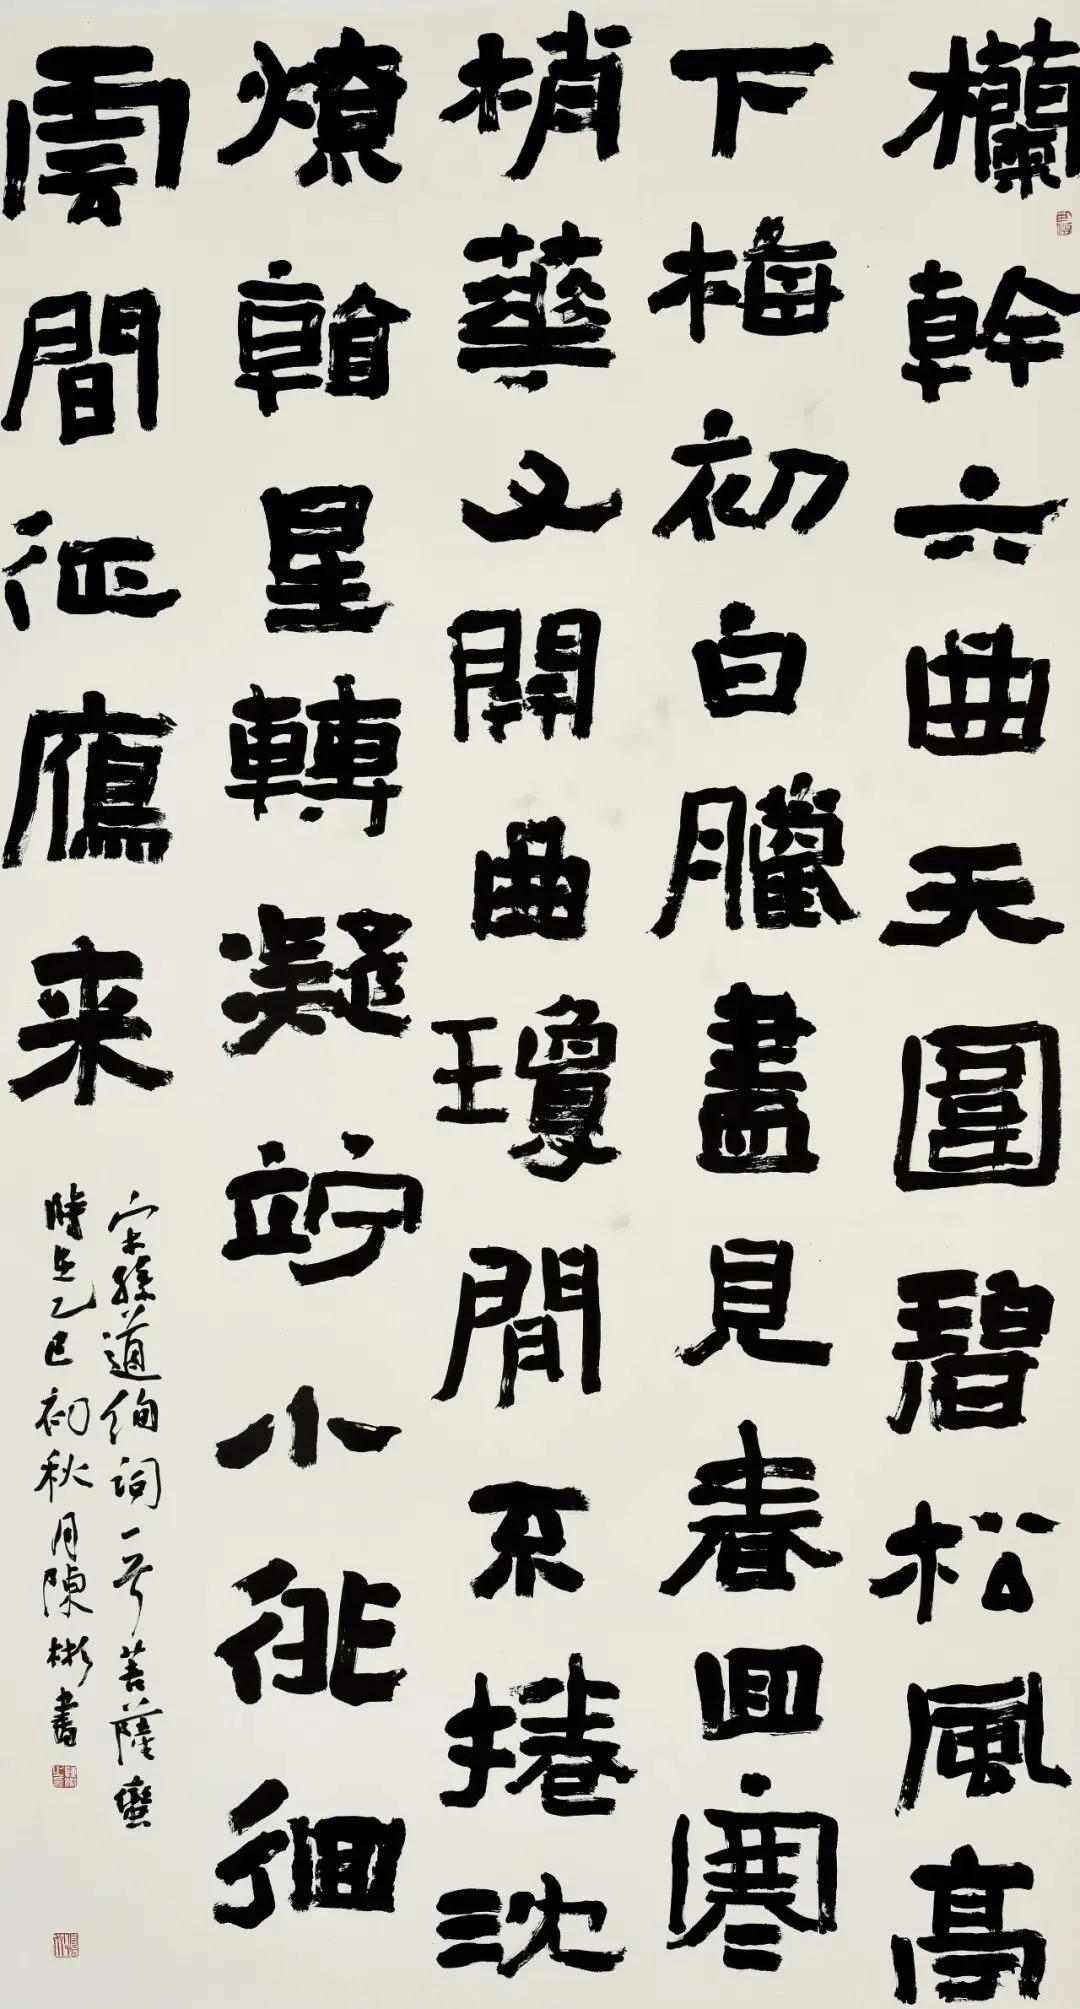 欄幹六曲天圍碧松風高
下梅初白臘盡見春回寒
梢華又開曲瓊間不捲沈
燎翰星轉凝竚小徘徊
雲間征鴈来
宋孫道絢詞一首菩薩蠻
時在乙巳初秋月陳彬書